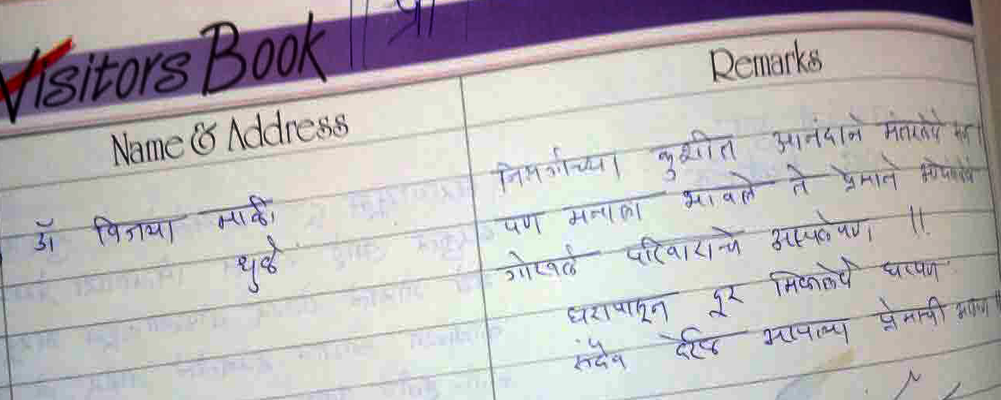 Visitors Book
Name & Address
Remarks
डॉ विजया माळी
धुळे
निसर्गाच्या कुशीत आनंदाने मंतरलेले मन
पण मनाला भावले ते प्रेमाने
गोखले परिवाराचे आपलेपण ॥
घरापासून दूर मिळालेले घरपण
सदैव देईल आपल्या प्रेमाची